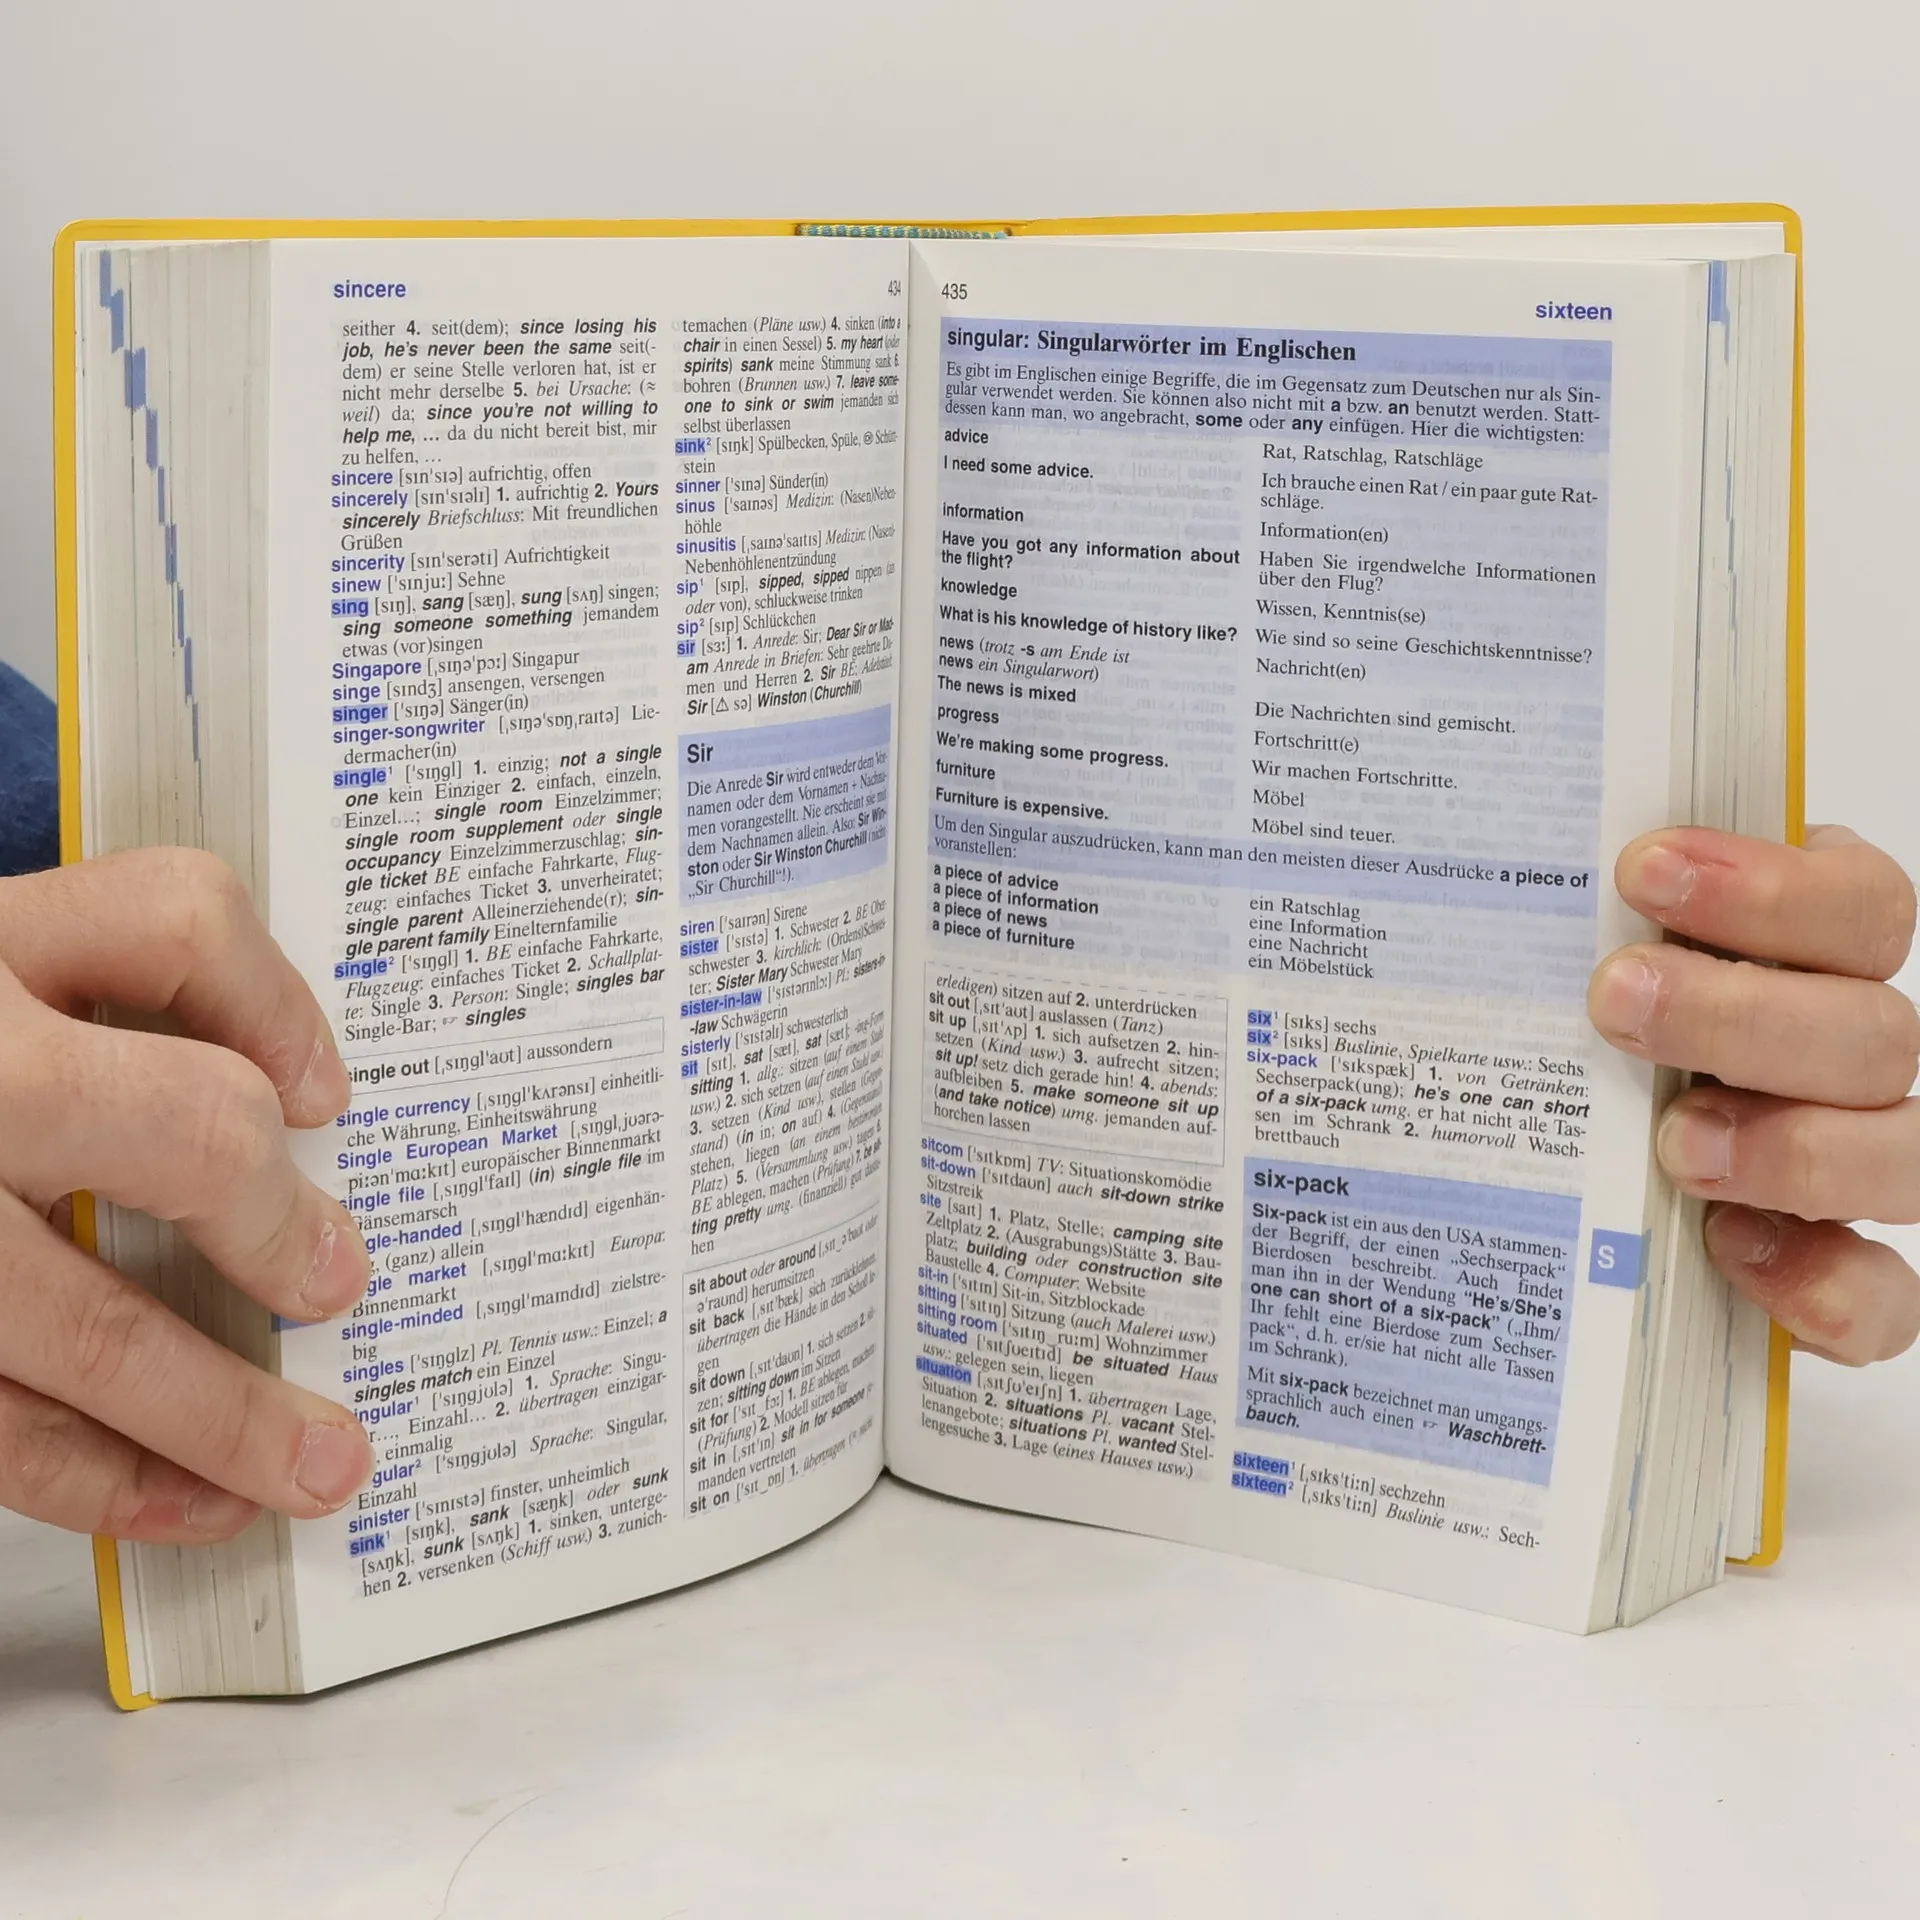 sincere
434
seither 4. seit(dem); since losing his
job, he's never been the same seit(-
dem) er seine Stelle verloren hat, ist er
nicht mehr derselbe 5. bei Ursache: (≈
weil) da; since you're not willing to
help me, ... da du nicht bereit bist, mir
zu helfen, ...
sincere [sɪn'sɪə] aufrichtig, offen
sincerely [sɪn'sɪəlɪ] 1. aufrichtig 2. Yours
sincerely Briefschluss: Mit freundlichen
Grüßen
sincerity [sɪn'serətɪ] Aufrichtigkeit
sinew ['sɪnjuː] Sehne
sing [sɪŋ], sang [sæŋ], sung [sʌŋ] singen;
sing someone something jemandem
etwas (vor)singen
Singapore [ˌsɪŋə'pɔː] Singapur
singe [sɪndʒ] ansengen, versengen
singer ['sɪŋə] Sänger(in)
singer-songwriter [ˌsɪŋə'sɒŋˌraɪtə] Lie-
dermacher(in)
single¹ ['sɪŋgl] 1. einzig; not a single
one kein Einziger 2. einfach, einzeln,
Einzel...; single room Einzelzimmer;
single room supplement oder single
occupancy Einzelzimmerzuschlag; sin-
gle ticket BE einfache Fahrkarte, Flug-
zeug: einfaches Ticket 3. unverheiratet;
single parent Alleinerziehende(r); sin-
gle parent family Einelternfamilie
single² ['sɪŋgl] 1. BE einfache Fahrkarte,
Flugzeug: einfaches Ticket 2. Schallplat-
te: Single 3. Person: Single; singles bar
Single-Bar; ☞ singles
single out [ˌsɪŋgl'aʊt] aussondern
single currency [ˌsɪŋgl'kʌrənsɪ] einheitli-
che Währung, Einheitswährung
Single European Market [ˌsɪŋglˌjʊərə-
piːən'mɑːkɪt] europäischer Binnenmarkt
single file [ˌsɪŋgl'faɪl] (in) single file im
Gänsemarsch
gle-handed [ˌsɪŋgl'hændɪd] eigenhän-
, (ganz) allein
gle market [ˌsɪŋgl'mɑːkɪt] Europa:
Binnenmarkt
single-minded [ˌsɪŋgl'maɪndɪd] zielstre-
big
singles ['sɪŋglz] Pl. Tennis usw.: Einzel; a
singles match ein Einzel
ingular¹ ['sɪŋgjʊlə] 1. Sprache: Singu-
r..., Einzahl... 2. übertragen einzigar-
, einmalig
gular² ['sɪŋgjʊlə] Sprache: Singular,
Einzahl
sinister ['sɪnɪstə] finster, unheimlich
sink¹ [sɪŋk], sank [sæŋk] oder sunk
[sʌŋk], sunk [sʌŋk] 1. sinken, unterge-
hen 2. versenken (Schiff usw.) 3. zunich-
temachen (Pläne usw.) 4. sinken (into a
chair in einen Sessel) 5. my heart (oder
spirits) sank meine Stimmung sank 6.
bohren (Brunnen usw.) 7. leave some-
one to sink or swim jemanden sich
selbst überlassen
sink² [sɪŋk] Spülbecken, Spüle, Schütt-
stein
sinner ['sɪnə] Sünder(in)
sinus ['saɪnəs] Medizin: (Nasen)Neben-
höhle
sinusitis [ˌsaɪnə'saɪtɪs] Medizin: (Nasen)-
Nebenhöhlenentzündung
sip¹ [sɪp], sipped, sipped nippen (an
oder von), schluckweise trinken
sip² [sɪp] Schlückchen
sir [sɜː] 1. Anrede: Sir; Dear Sir or Mad-
am Anrede in Briefen: Sehr geehrte Da-
men und Herren 2. Sir BE, Adelstitel:
Sir [⚠ sə] Winston (Churchill)
Sir
Die Anrede Sir wird entweder dem Vor-
namen oder dem Vornamen + Nachna-
men vorangestellt. Nie erscheint sie mit
dem Nachnamen allein. Also: Sir Win-
ston oder Sir Winston Churchill (nicht
„Sir Churchill“!).
siren ['saɪrən] Sirene
sister ['sɪstə] 1. Schwester 2. BE Ober-
schwester 3. kirchlich: (Ordens)Schwes-
ter; Sister Mary Schwester Mary
sister-in-law ['sɪstərɪnlɔː] Pl.: sisters-in-
-law Schwägerin
sisterly ['sɪstəlɪ] schwesterlich
sit [sɪt], sat [sæt], sat [sæt]; -ing-Form
sitting 1. allg.: sitzen (auf einem Stuhl
usw.) 2. sich setzen (auf einen Stuhl usw.)
3. setzen (Kind usw.), stellen (Gegen-
stand) (in in; on auf) 4. (Gegenstand)
stehen, liegen (an einem bestimmten
Platz) 5. (Versammlung usw.) tagen 6.
BE ablegen, machen (Prüfung) 7. be sit-
ting pretty umg. (finanziell) gut daste-
hen
sit about oder around [ˌsɪt_ə'baʊt oder
ə'raʊnd] herumsitzen
sit back [ˌsɪt'bæk] sich zurücklehnen,
übertragen die Hände in den Schoß le-
gen
sit down [ˌsɪt'daʊn] 1. sich setzen 2. sit-
zen; sitting down im Sitzen
sit for ['sɪt_fɔː] 1. BE ablegen, machen
(Prüfung) 2. Modell sitzen für
sit in [ˌsɪt'ɪn] sit in for someone je-
manden vertreten
sit on ['sɪt_ɒn] 1. übertragen
435
sixteen
singular: Singularwörter im Englischen
Es gibt im Englischen einige Begriffe, die im Gegensatz zum Deutschen nur als Sin-
gular verwendet werden. Sie können also nicht mit a bzw. an benutzt werden. Statt-
dessen kann man, wo angebracht, some oder any einfügen. Hier die wichtigsten:
advice Rat, Ratschlag, Ratschläge
I need some advice. Ich brauche einen Rat / ein paar gute Rat-
schläge.
information Information(en)
Have you got any information about Haben Sie irgendwelche Informationen
the flight? über den Flug?
knowledge Wissen, Kenntnis(se)
What is his knowledge of history like? Wie sind so seine Geschichtskenntnisse?
news (trotz -s am Ende ist Nachricht(en)
news ein Singularwort)
The news is mixed Die Nachrichten sind gemischt.
progress Fortschritt(e)
We're making some progress. Wir machen Fortschritte.
furniture Möbel
Furniture is expensive. Möbel sind teuer.
Um den Singular auszudrücken, kann man den meisten dieser Ausdrücke a piece of
voranstellen:
a piece of advice ein Ratschlag
a piece of information eine Information
a piece of news eine Nachricht
a piece of furniture ein Möbelstück
erledigen) sitzen auf 2. unterdrücken
sit out [ˌsɪt'aʊt] auslassen (Tanz)
sit up [ˌsɪt'ʌp] 1. sich aufsetzen 2. hin-
setzen (Kind usw.) 3. aufrecht sitzen;
sit up! setz dich gerade hin! 4. abends:
aufbleiben 5. make someone sit up
(and take notice) umg. jemanden auf-
horchen lassen
sitcom ['sɪtkɒm] TV: Situationskomödie
sit-down ['sɪtdaʊn] auch sit-down strike
Sitzstreik
site [saɪt] 1. Platz, Stelle; camping site
Zeltplatz 2. (Ausgrabungs)Stätte 3. Bau-
platz; building oder construction site
Baustelle 4. Computer: Website
sit-in ['sɪtɪn] Sit-in, Sitzblockade
sitting ['sɪtɪŋ] Sitzung (auch Malerei usw.)
sitting room ['sɪtɪŋ_ruːm] Wohnzimmer
situated ['sɪtʃʊeɪtɪd] be situated Haus
usw.: gelegen sein, liegen
situation [ˌsɪtʃʊ'eɪʃn] 1. übertragen Lage,
Situation 2. situations Pl. vacant Stel-
lenangebote; situations Pl. wanted Stel-
lengesuche 3. Lage (eines Hauses usw.)
six¹ [sɪks] sechs
six² [sɪks] Buslinie, Spielkarte usw.: Sechs
six-pack ['sɪkspæk] 1. von Getränken:
Sechserpack(ung); he's one can short
of a six-pack umg. er hat nicht alle Tas-
sen im Schrank 2. humorvoll Wasch-
brettbauch
six-pack
Six-pack ist ein aus den USA stammen-
der Begriff, der einen „Sechserpack“
Bierdosen beschreibt. Auch findet
man ihn in der Wendung “He's/She's
one can short of a six-pack” („Ihm/
Ihr fehlt eine Bierdose zum Sechser-
pack“, d. h. er/sie hat nicht alle Tassen
im Schrank).
Mit six-pack bezeichnet man umgangs-
sprachlich auch einen ☞ Waschbrett-
bauch.
sixteen¹ [ˌsɪks'tiːn] sechzehn
sixteen² [ˌsɪks'tiːn] Buslinie usw.: Sech-
S